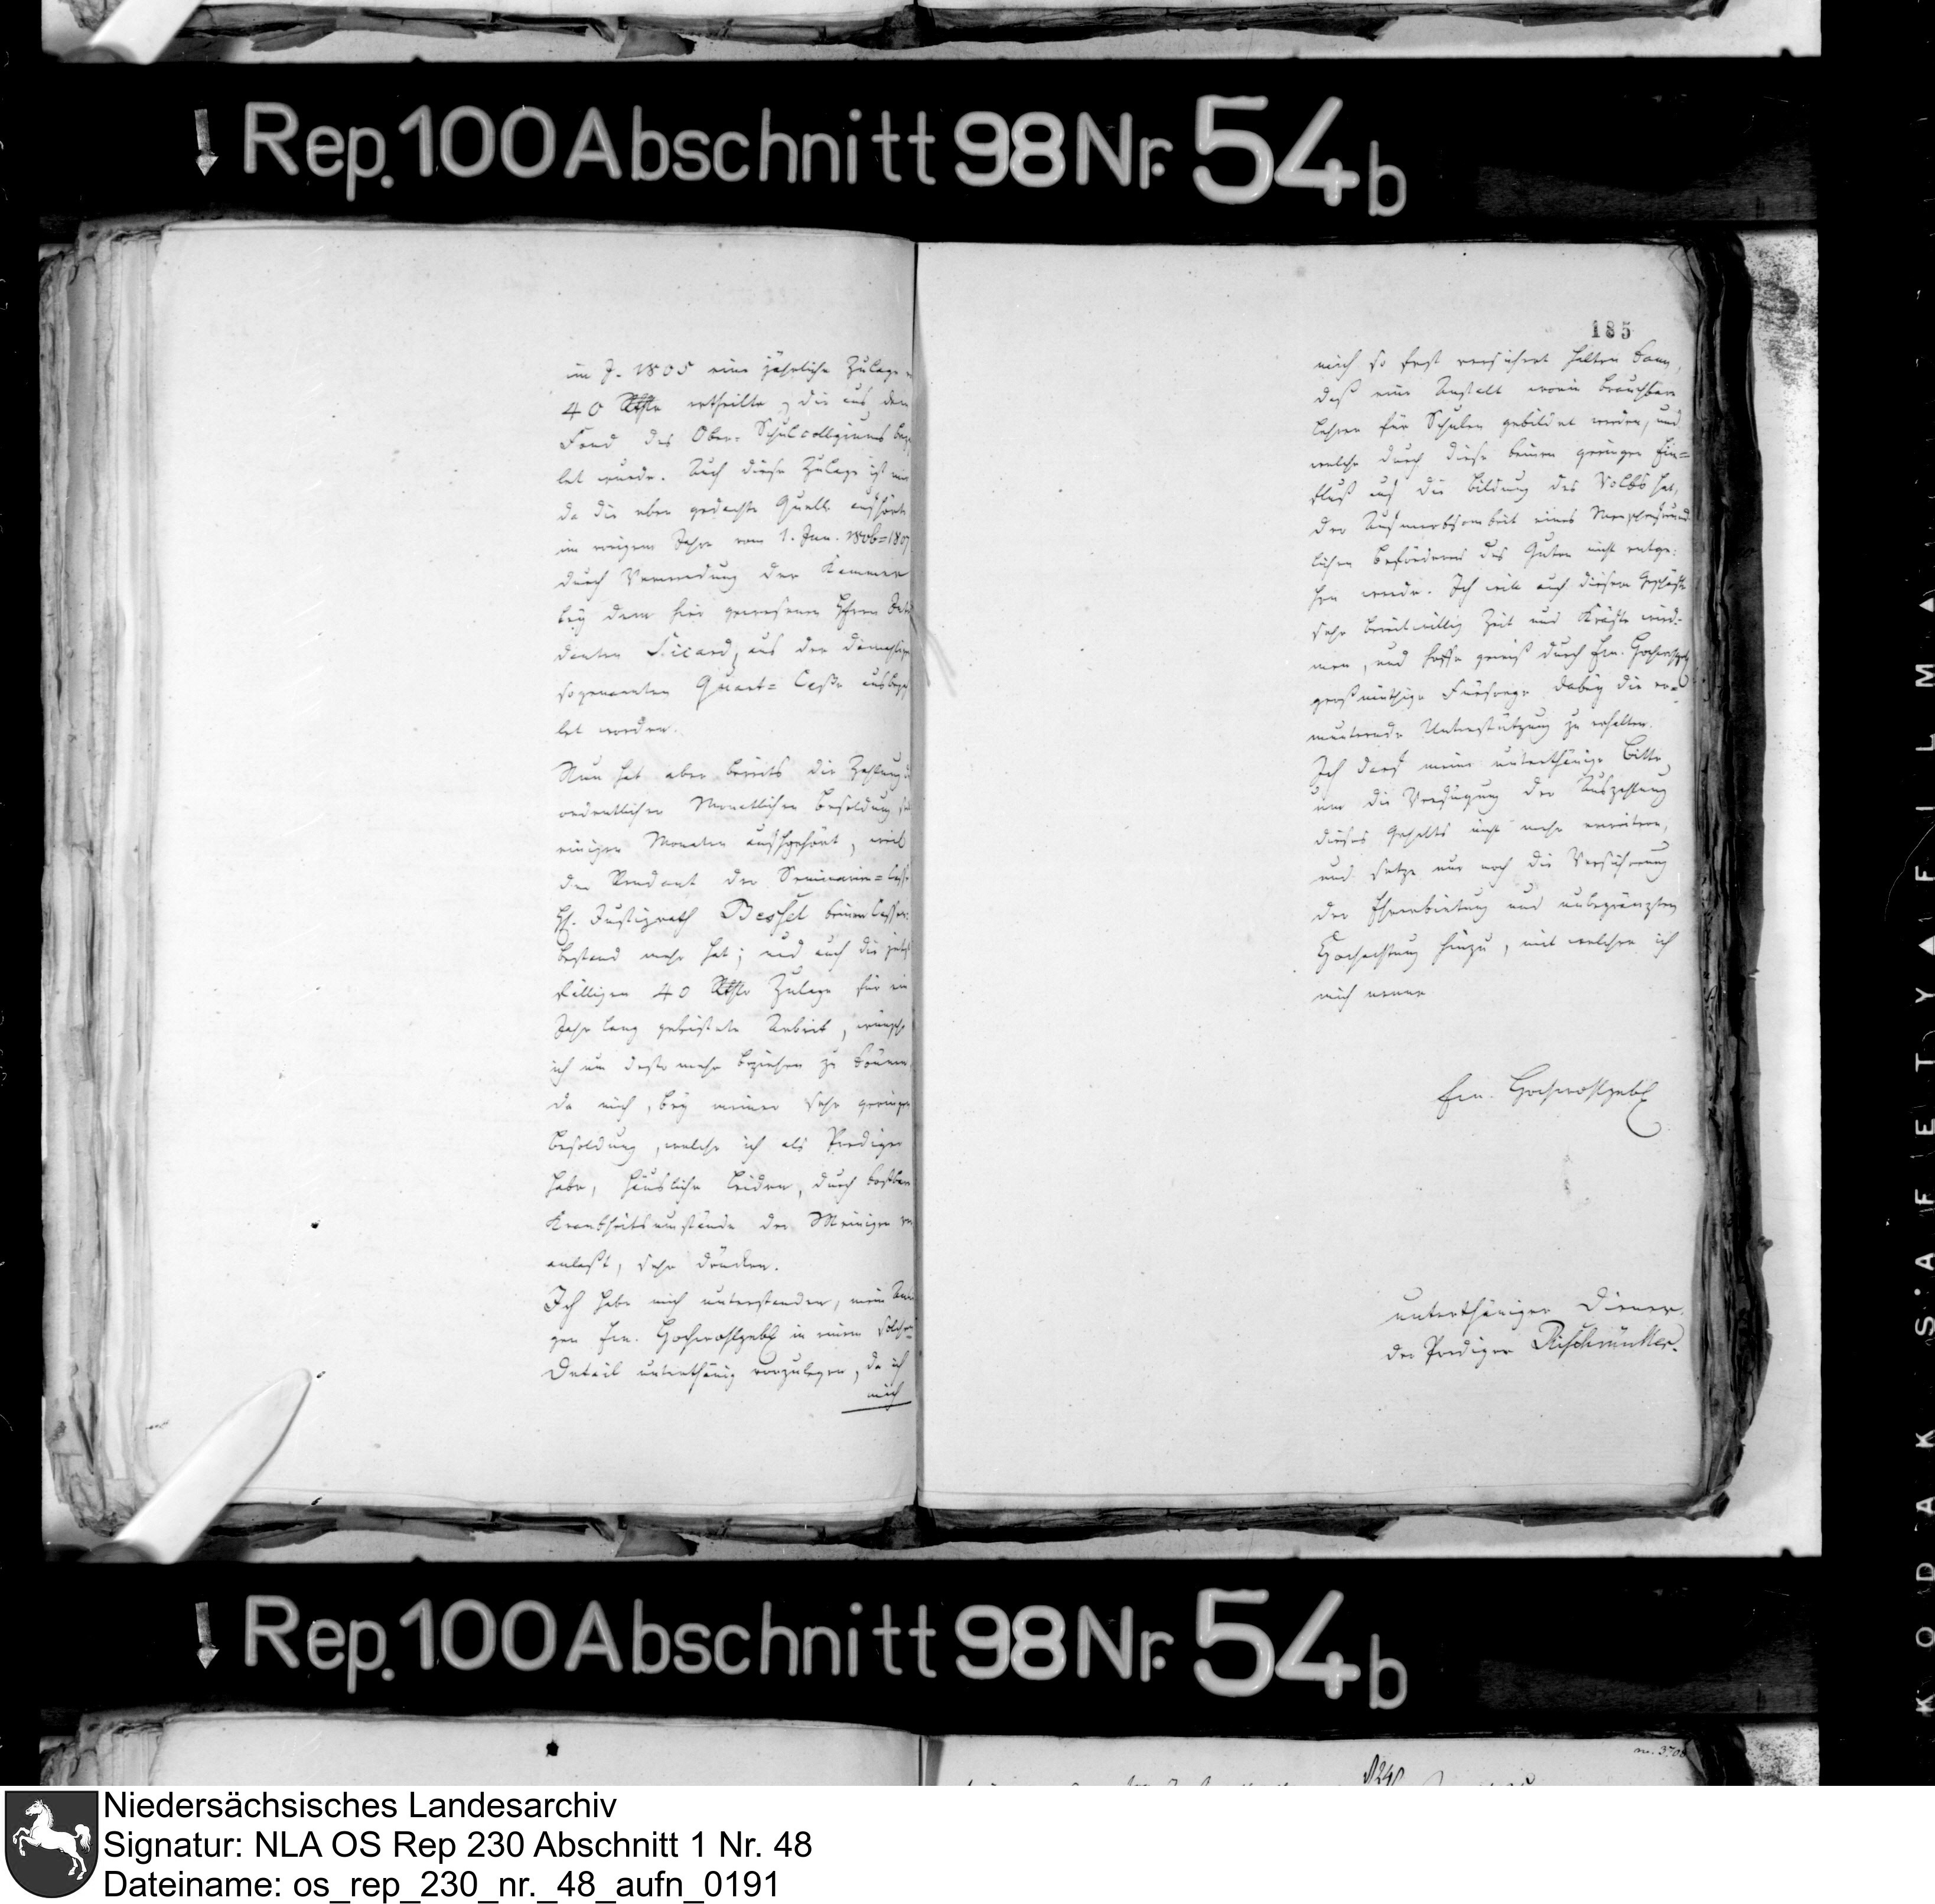 Rep. 100 Abschnitt 98 Nr. 54b
im J. 1805 eine jährliche Zulage
40 Rthlr ertheilte, die aus dem
Fond des Ober-Schulcollegiums
let wurde. Auch diese Zulage ist mir
da die eben gedachte Quelle aufhörte
im vorigen Jahre vom 1. Jun. 1806=1807
durch Verwendung der Kammer
bey dem hier gewesenen Herrn
danten Sicard, aus der damaligen
sogenannten Quart=Casse
let worden.
Nun hat aber bereits die Zahlung
ordentlicher Monatlichen Besoldung
einigen Monaten aufgehört, weil
der Rendant der Seminarien=Casse
H. Justizrath Bessel keinen Cassen
bestand mehr hat; und auch die jetzt
fälligen 40 Rthlr Zulage für ein
Jahr lang geleistete Arbeit, wünsche
ich um desto mehr beziehen zu können,
da mich, bey meiner sehr geringen
Besoldung, welche ich als Prediger
habe, häusliche Leiden, durch kostbare
Krankheitsumstände der Meinigen
anlaßt, sehr drücken.
Ich habe mich unterstanden, mein
gen Ew. Hochwohlgeb in einem solchen
Detail unterthänig vorzulegen, da ich
mich
185
mich so fest versichert halten kann,
daß eine Anstalt worin brauchbare
Lehrer für Schulen gebildet werden, und
welche durch diese keinen geringen Ein=
fluß auf die Bildung des Volks hat,
der Aufmerksamkeit eines Menschenfreund
lichen Beförderers des Guten nicht entge=
hen werde. Ich will auch diesem Geschäfte
sehr bereitwillig Zeit und Kräfte wid=
men, und hoffe gewiß durch Ew. Hochwohlgeb
großmüthige Fürsorge dabey die er=
munternde Unterstützung zu erhalten.
Ich darf meine unterthänige Bitte,
um die Verfügung der Auszahlung
dieses Gehalts nicht mehr erweitern,
und setze nur noch die Versicherung
der Ehrerbietung und unbegränzten
Hochachtung hinzu, mit welcher ich
mich nenne
Ew. Hochwohlgeb
unterthäniger Diener.
der Prediger Rischmüller.
Rep. 100 Abschnitt 98 Nr. 54b
KODAK SAFETY FILM
Niedersächsisches Landesarchiv
Signatur: NLA OS Rep 230 Abschnitt 1 Nr. 48
Dateiname: os_rep_230_nr._48_aufn_0191